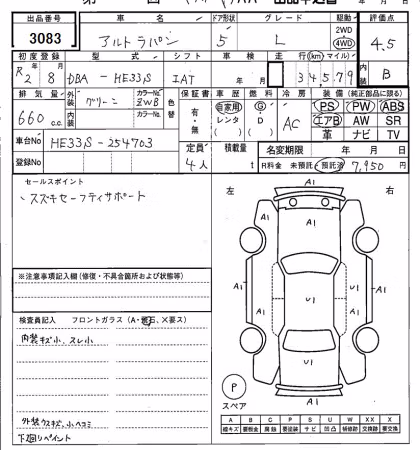 出品番号 車名 ドア形状 グレード 駆動 評価点
3083 アルトラパン 5 L 2WD 4WD 4.5
初度登録 型式 シフト 車検 走行(km)(マイル) 内装
R2年8月 DBA-HE33S IAT 年 月 34,579 B
排気量 外装 グリーン カラーNo. ZWB 色替 保証書 車歴 燃料 冷房 装備(純正部品に限る)
660 c.c. 内装 カラーNo. 有・無 自家用 レンタ ( ) G D ( ) AC PS PW ABS
エアB AW SR
革 ナビ TV
車台No HE33S-254703 定員 4人 積載量 t 名変期限 年 月 日
登録No R料金 未預託・預託済 7,950円
セールスポイント
・スズキセーフティサポート
左 右
※注意事項記入欄(修復・不具合箇所および状態等)
検査員記入 フロントガラス(A・飛石、X要ス)
内装キズ小、スレ小
外装ウスキズ、小ヘコミ
下廻りペイント
A1
A1 A1
A1 A1 U1 U1 A1
U1
A1
P
スペア
A B C P S U W X XX
線キズ 要板金 腐蝕 要塗装 サビ 凹凸 補修跡 交換跡 要交換